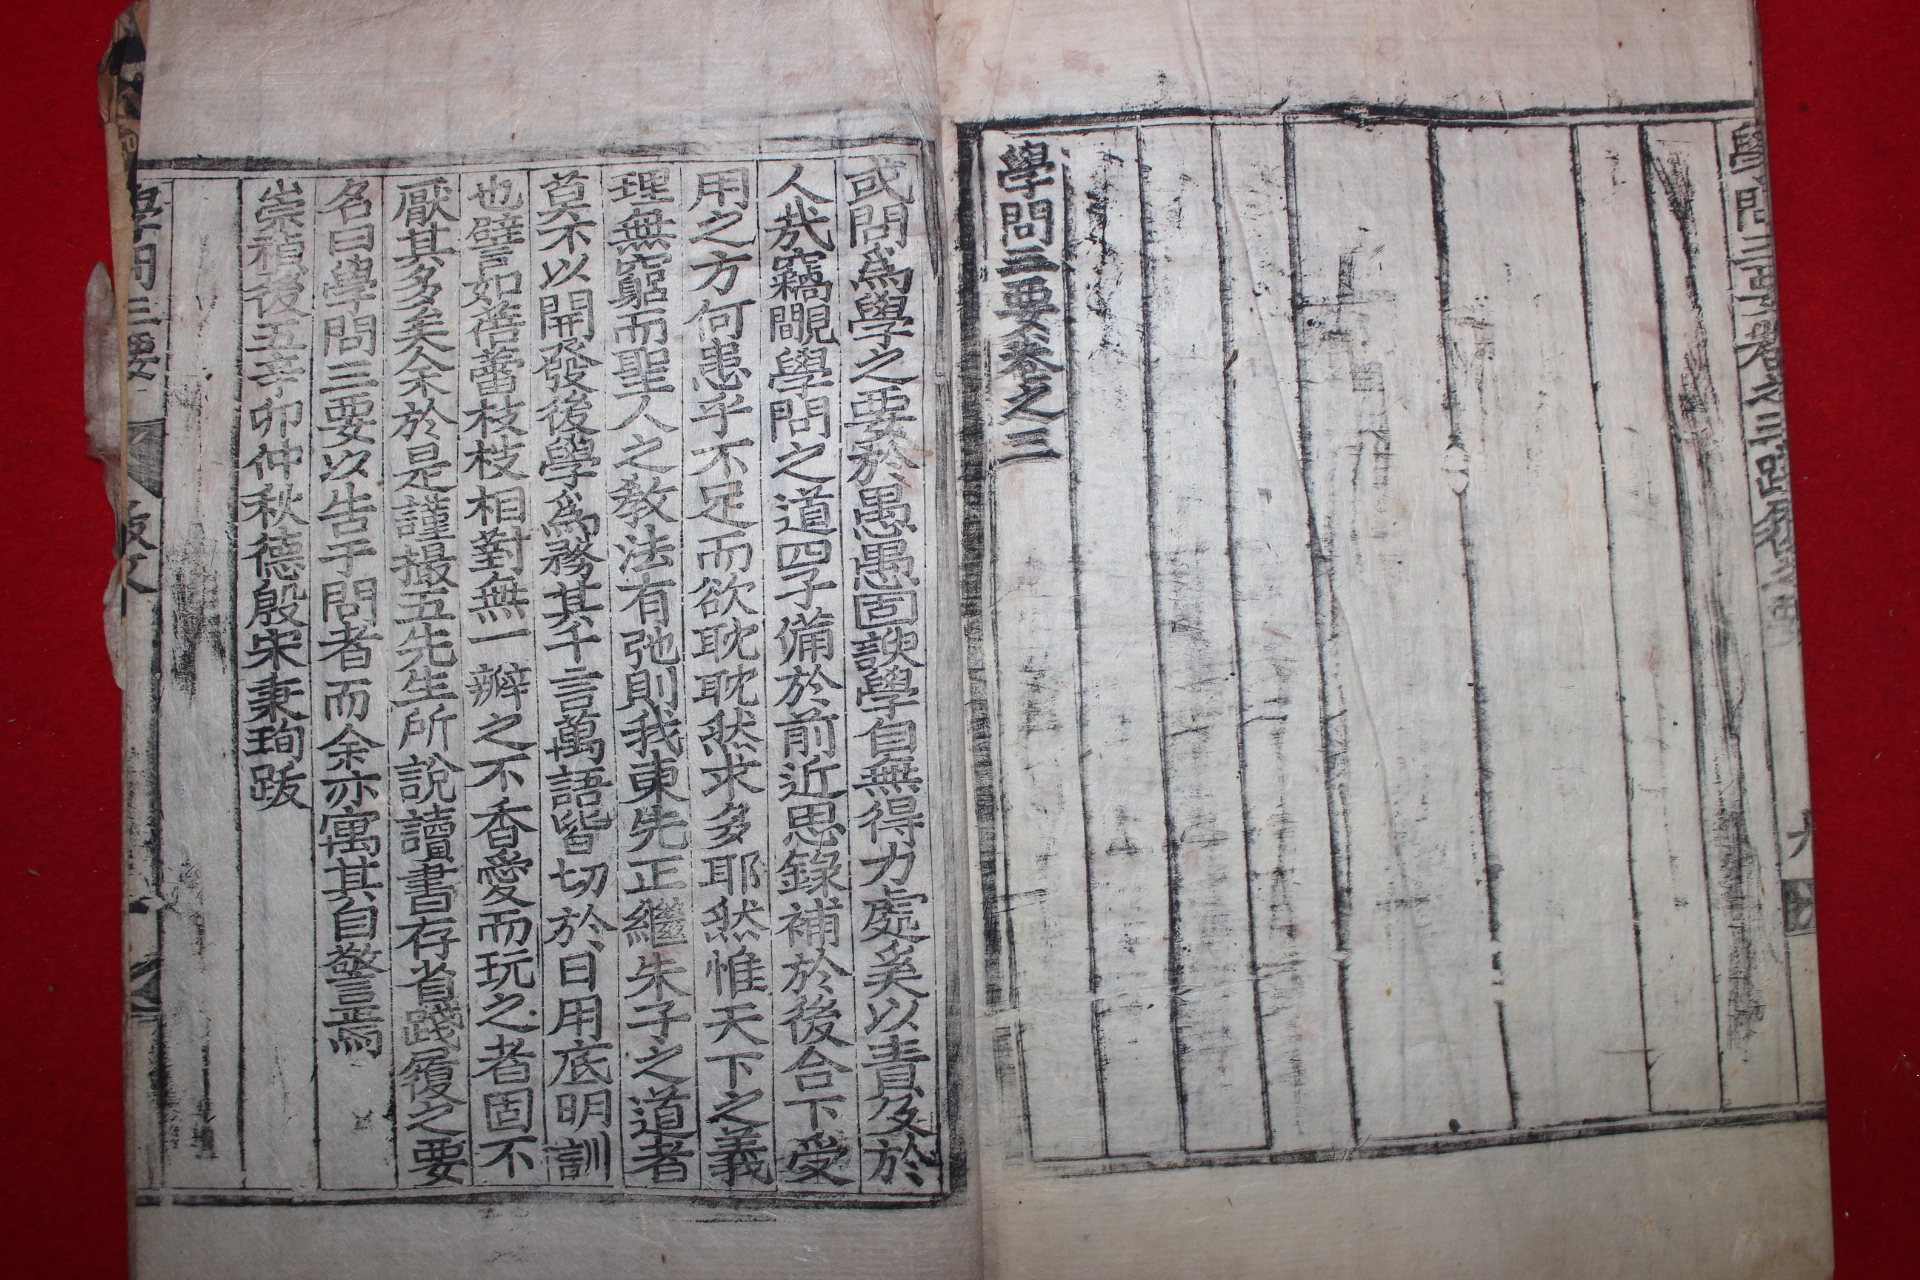 學問三要卷之三
或問爲學之要於愚愚固諛學自無得力處奚以責及於
人哉竊覸學問之道四子備於前近思錄補於後合下受
用之方何患乎不足而欲耽耽然求多耶然惟天下之義
理無窮而聖人之敎法有弛則我東先正繼朱子之道者
莫不以開發後學爲務其千言萬語皆切於日用底明訓
也譬如蓓蕾枝枝相對無一瓣之不香愛而玩之者固不
厭其多矣余於是謹撮五先生所說讀書存省踐履之要
名曰學問三要以告于問者而余亦寓其自警焉
崇禎後五辛卯仲秋德殷宋秉珣跋
學問三要
跋文